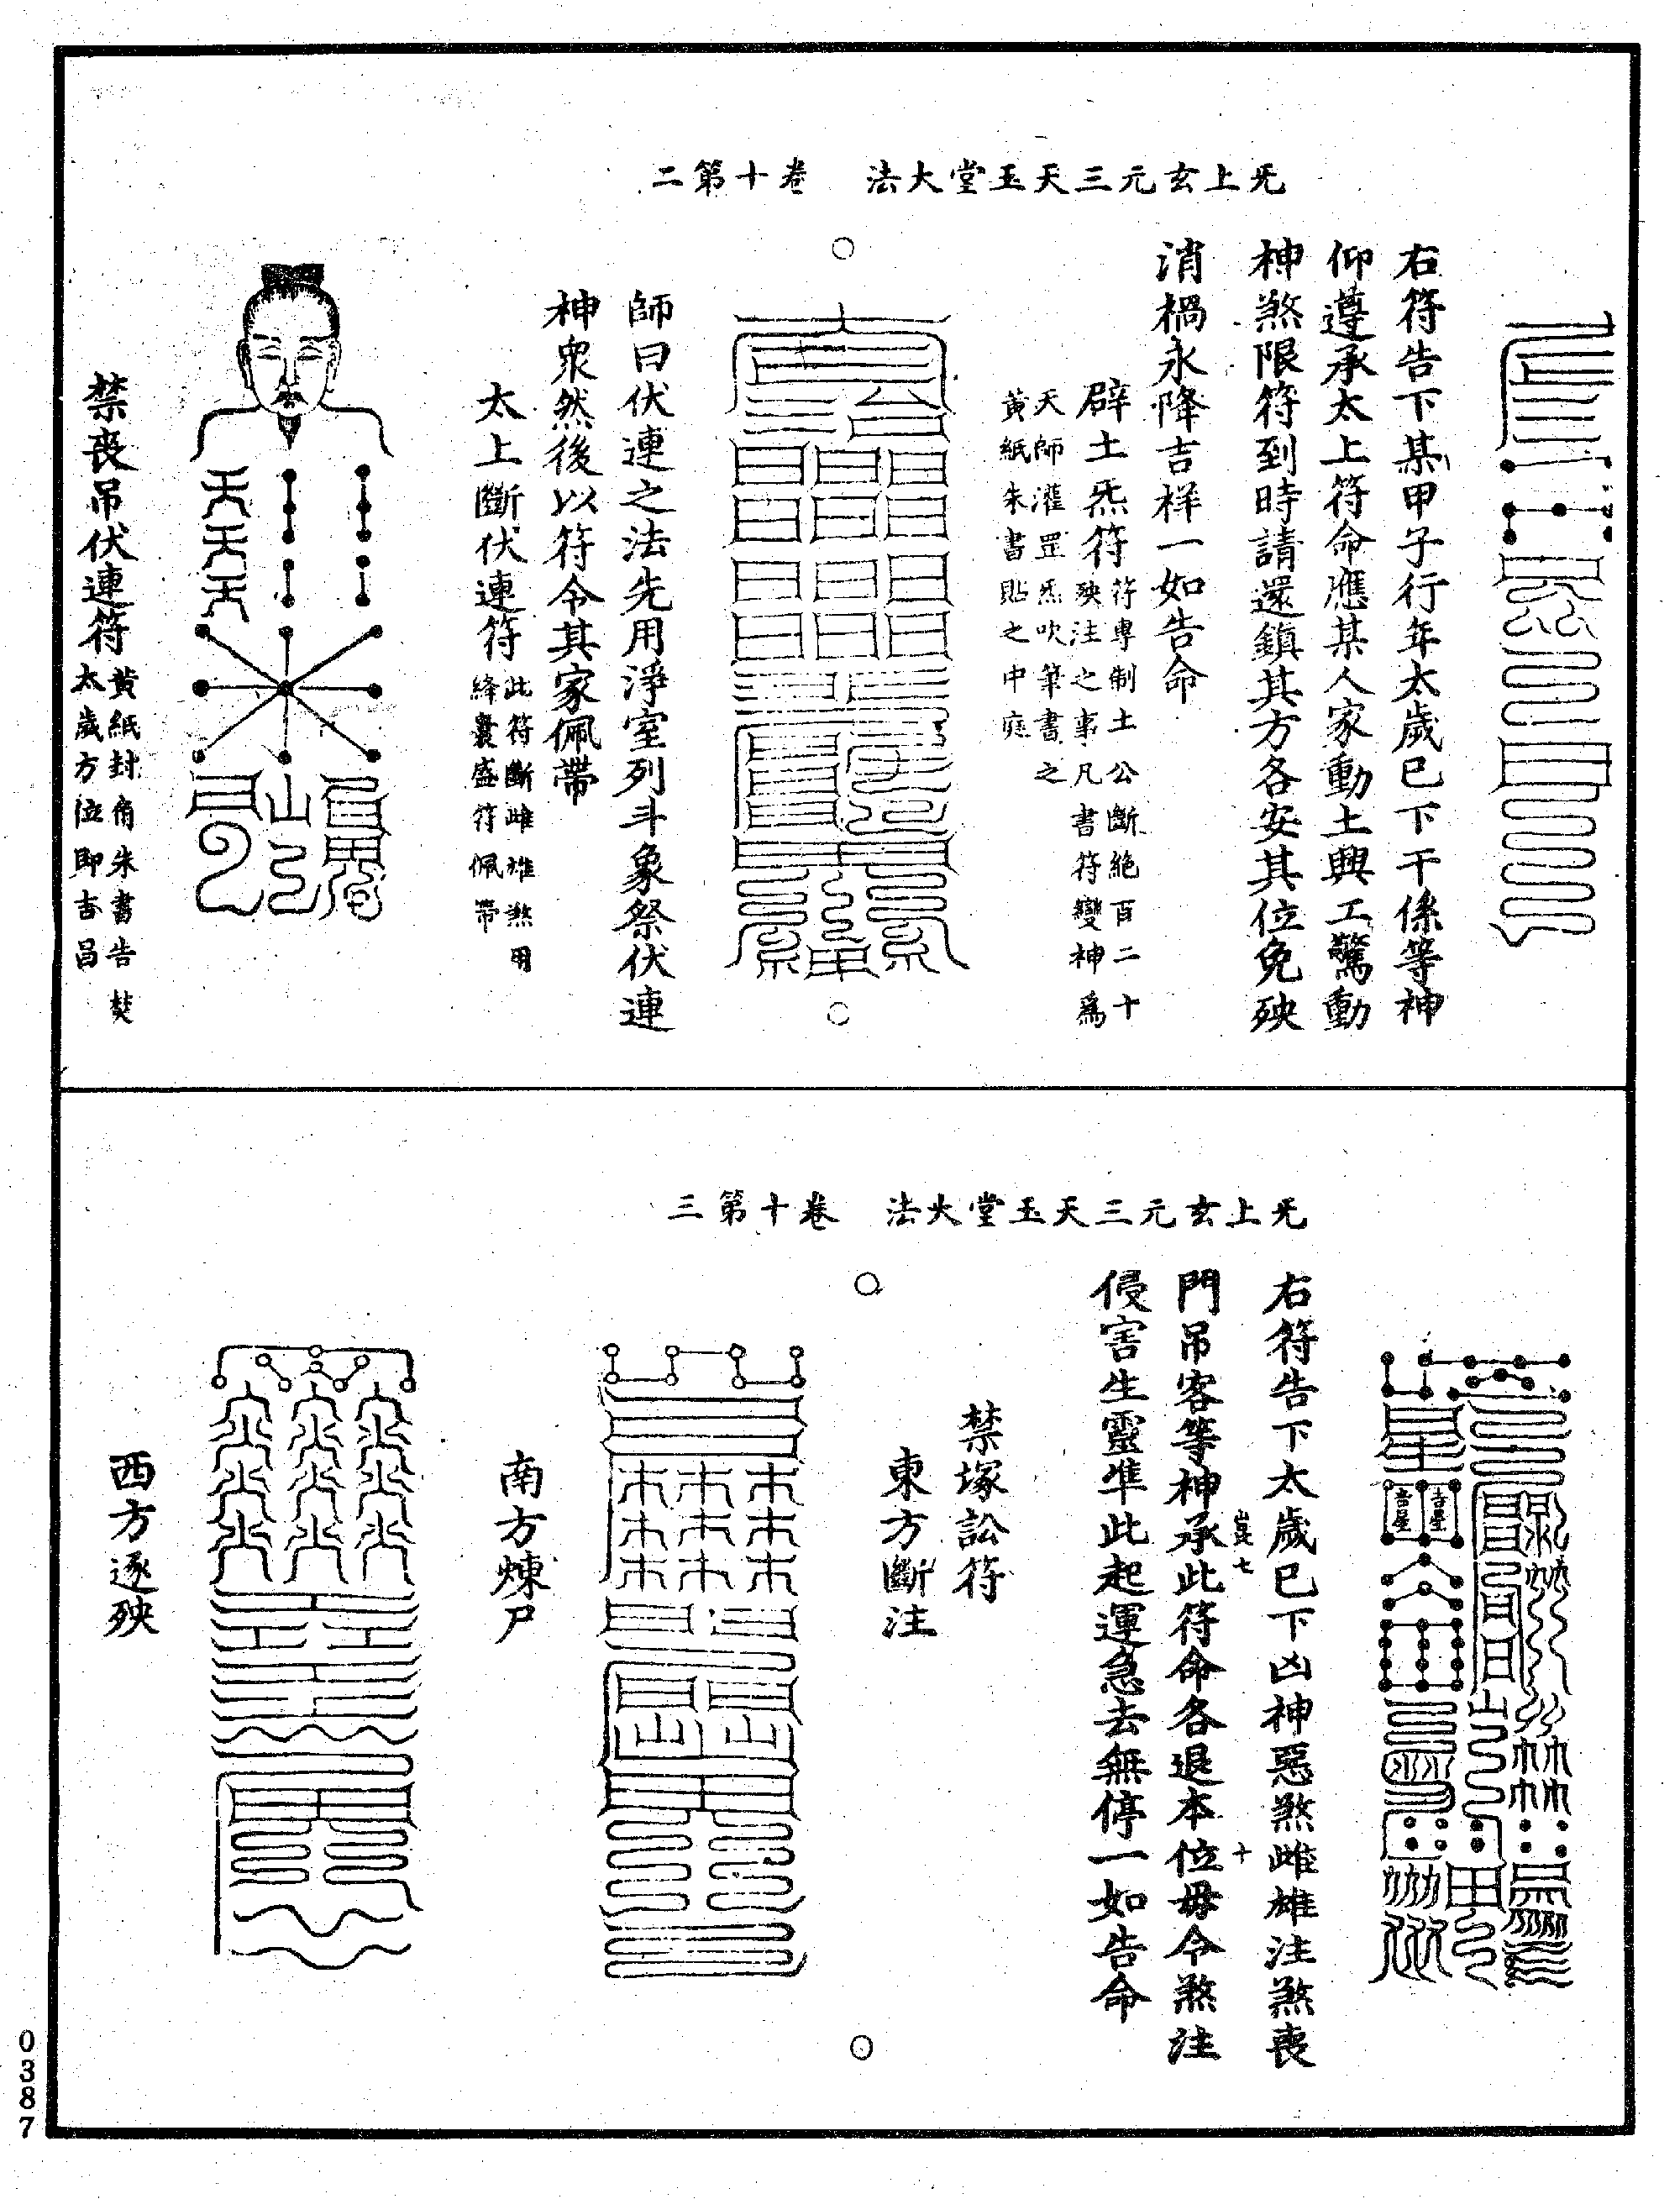 无上玄元三天玉堂大法　卷十第二
右符告下某甲子行年太歲已下干係等神
仰遵承太上符命應某人家動土興工驚動
神煞限符到時請還鎮其方各安其位免殃
消禍永降吉祥一如告命
辟土炁符
符專制土公斷絕百二十
殃注之事凡書符變神爲
天師灌罡炁吹筆書之
黃紙朱書貼之中庭
師曰伏連之法先用淨室列斗象祭伏連
神眾然後以符令其家佩帶
太上斷伏連符
此符斷雌雄煞用
絳囊盛符佩帶
禁喪吊伏連符
黃紙封角朱書告焚
太歲方位即吉昌
无上玄元三天玉堂大法　卷十第三
吉星
吉星
右符告下太歲已下凶神惡煞雌雄注煞喪
門吊客等神承此符命各退本位毋令煞注
侵害生靈準此起運急去無停一如告命
禁塚訟符
東方斷注
南方煉尸
西方逐殃
0387